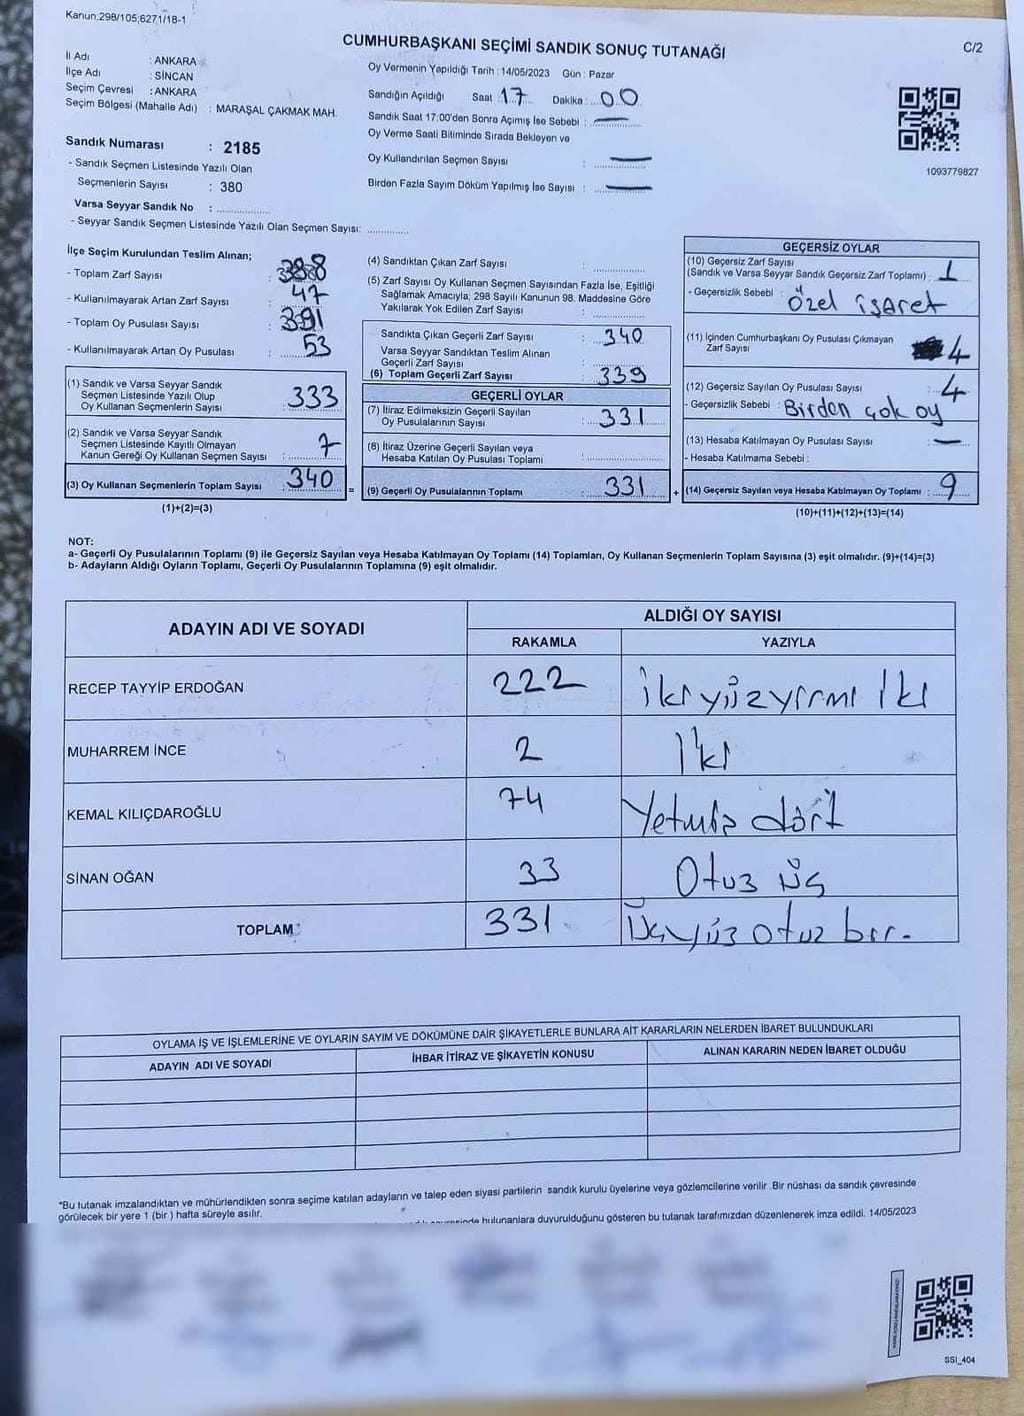 Kanun;298/105,6271/18-1
CUMHURBAŞKANI SEÇİMİ SANDIK SONUÇ TUTANAĞI
C/2
İl Adı : ANKARA
İlçe Adı : SİNCAN
Seçim Çevresi : ANKARA
Seçim Bölgesi (Mahalle Adı) : MARAŞAL ÇAKMAK MAH.
Sandık Numarası : 2185
- Sandık Seçmen Listesinde Yazılı Olan
Seçmenlerin Sayısı : 380
Varsa Seyyar Sandık No :
- Seyyar Sandık Seçmen Listesinde Yazılı Olan Seçmen Sayısı:
Oy Vermenin Yapıldığı Tarih : 14/05/2023 Gün : Pazar
Sandığın Açıldığı Saat 17 Dakika : 00
Sandık Saat 17:00'den Sonra Açımış İse Sebebi : —
Oy Verme Saati Bitiminde Sırada Bekleyen ve
Oy Kullandırılan Seçmen Sayısı : —
Birden Fazla Sayım Döküm Yapılmış İse Sayısı : —
1093779827
İlçe Seçim Kurulundan Teslim Alınan;
- Toplam Zarf Sayısı :
- Kullanılmayarak Artan Zarf Sayısı : 47
- Toplam Oy Pusulası Sayısı : 391
- Kullanılmayarak Artan Oy Pusulası : 53
(1) Sandık ve Varsa Seyyar Sandık
Seçmen Listesinde Yazılı Olup
Oy Kullanan Seçmenlerin Sayısı : 333
(2) Sandık ve Varsa Seyyar Sandık
Seçmen Listesinde Kayıtlı Olmayan
Kanun Gereği Oy Kullanan Seçmen Sayısı : 7
(3) Oy Kullanan Seçmenlerin Toplam Sayısı : 340 =
(1)+(2)=(3)
(4) Sandıktan Çıkan Zarf Sayısı :
(5) Zarf Sayısı Oy Kullanan Seçmen Sayısından Fazla İse, Eşitliği
Sağlamak Amacıyla; 298 Sayılı Kanunun 98. Maddesine Göre
Yakılarak Yok Edilen Zarf Sayısı :
Sandıkta Çıkan Geçerli Zarf Sayısı : 340
Varsa Seyyar Sandıktan Teslim Alınan
Geçerli Zarf Sayısı :
(6) Toplam Geçerli Zarf Sayısı : 339
GEÇERLİ OYLAR
(7) İtiraz Edilmeksizin Geçerli Sayılan
Oy Pusulalarının Sayısı : 331
(8) İtiraz Üzerine Geçerli Sayılan veya
Hesaba Katılan Oy Pusulası Toplamı :
(9) Geçerli Oy Pusulalarının Toplamı : 331 +
GEÇERSİZ OYLAR
(10) Geçersiz Zarf Sayısı
(Sandık ve Varsa Seyyar Sandık Geçersiz Zarf Toplamı) : 1
- Geçersizlik Sebebi : Özel işaret
(11) İçinden Cumhurbaşkanı Oy Pusulası Çıkmayan
Zarf Sayısı : 4
(12) Geçersiz Sayılan Oy Pusulası Sayısı : 4
- Geçersizlik Sebebi : Birden çok oy
(13) Hesaba Katılmayan Oy Pusulası Sayısı : —
- Hesaba Katılmama Sebebi :
(14) Geçersiz Sayılan veya Hesaba Katılmayan Oy Toplamı : 9
(10)+(11)+(12)+(13)=(14)
NOT:
a- Geçerli Oy Pusulalarının Toplamı (9) ile Geçersiz Sayılan veya Hesaba Katılmayan Oy Toplamı (14) Toplamları, Oy Kullanan Seçmenlerin Toplam Sayısına (3) eşit olmalıdır. (9)+(14)=(3)
b- Adayların Aldığı Oyların Toplamı, Geçerli Oy Pusulalarının Toplamına (9) eşit olmalıdır.
ADAYIN ADI VE SOYADI ALDIĞI OY SAYISI
RAKAMLA YAZIYLA
RECEP TAYYİP ERDOĞAN 222 ikiyüzyirmi iki
MUHARREM İNCE 2 İki
KEMAL KILIÇDAROĞLU 74 Yetmiş dört
SİNAN OĞAN 33 Otuz üç
TOPLAM: 331 Üçyüz otuz bir.
OYLAMA İŞ VE İŞLEMLERİNE VE OYLARIN SAYIM VE DÖKÜMÜNE DAİR ŞİKAYETLERLE BUNLARA AİT KARARLARIN NELERDEN İBARET BULUNDUKLARI
ADAYIN ADI VE SOYADI İHBAR İTİRAZ VE ŞİKAYETİN KONUSU ALINAN KARARIN NEDEN İBARET OLDUĞU
*Bu tutanak imzalandıktan ve mühürlendikten sonra seçime katılan adayların ve talep eden siyasi partilerin sandık kurulu üyelerine veya gözlemcilerine verilir .Bir nüshası da sandık çevresinde
görülecek bir yere 1 (bir ) hafta süreyle asılır.
bulunanlara duyurulduğunu gösteren bu tutanak tarafımızdan düzenlenerek imza edildi. 14/05/2023
SSI_404